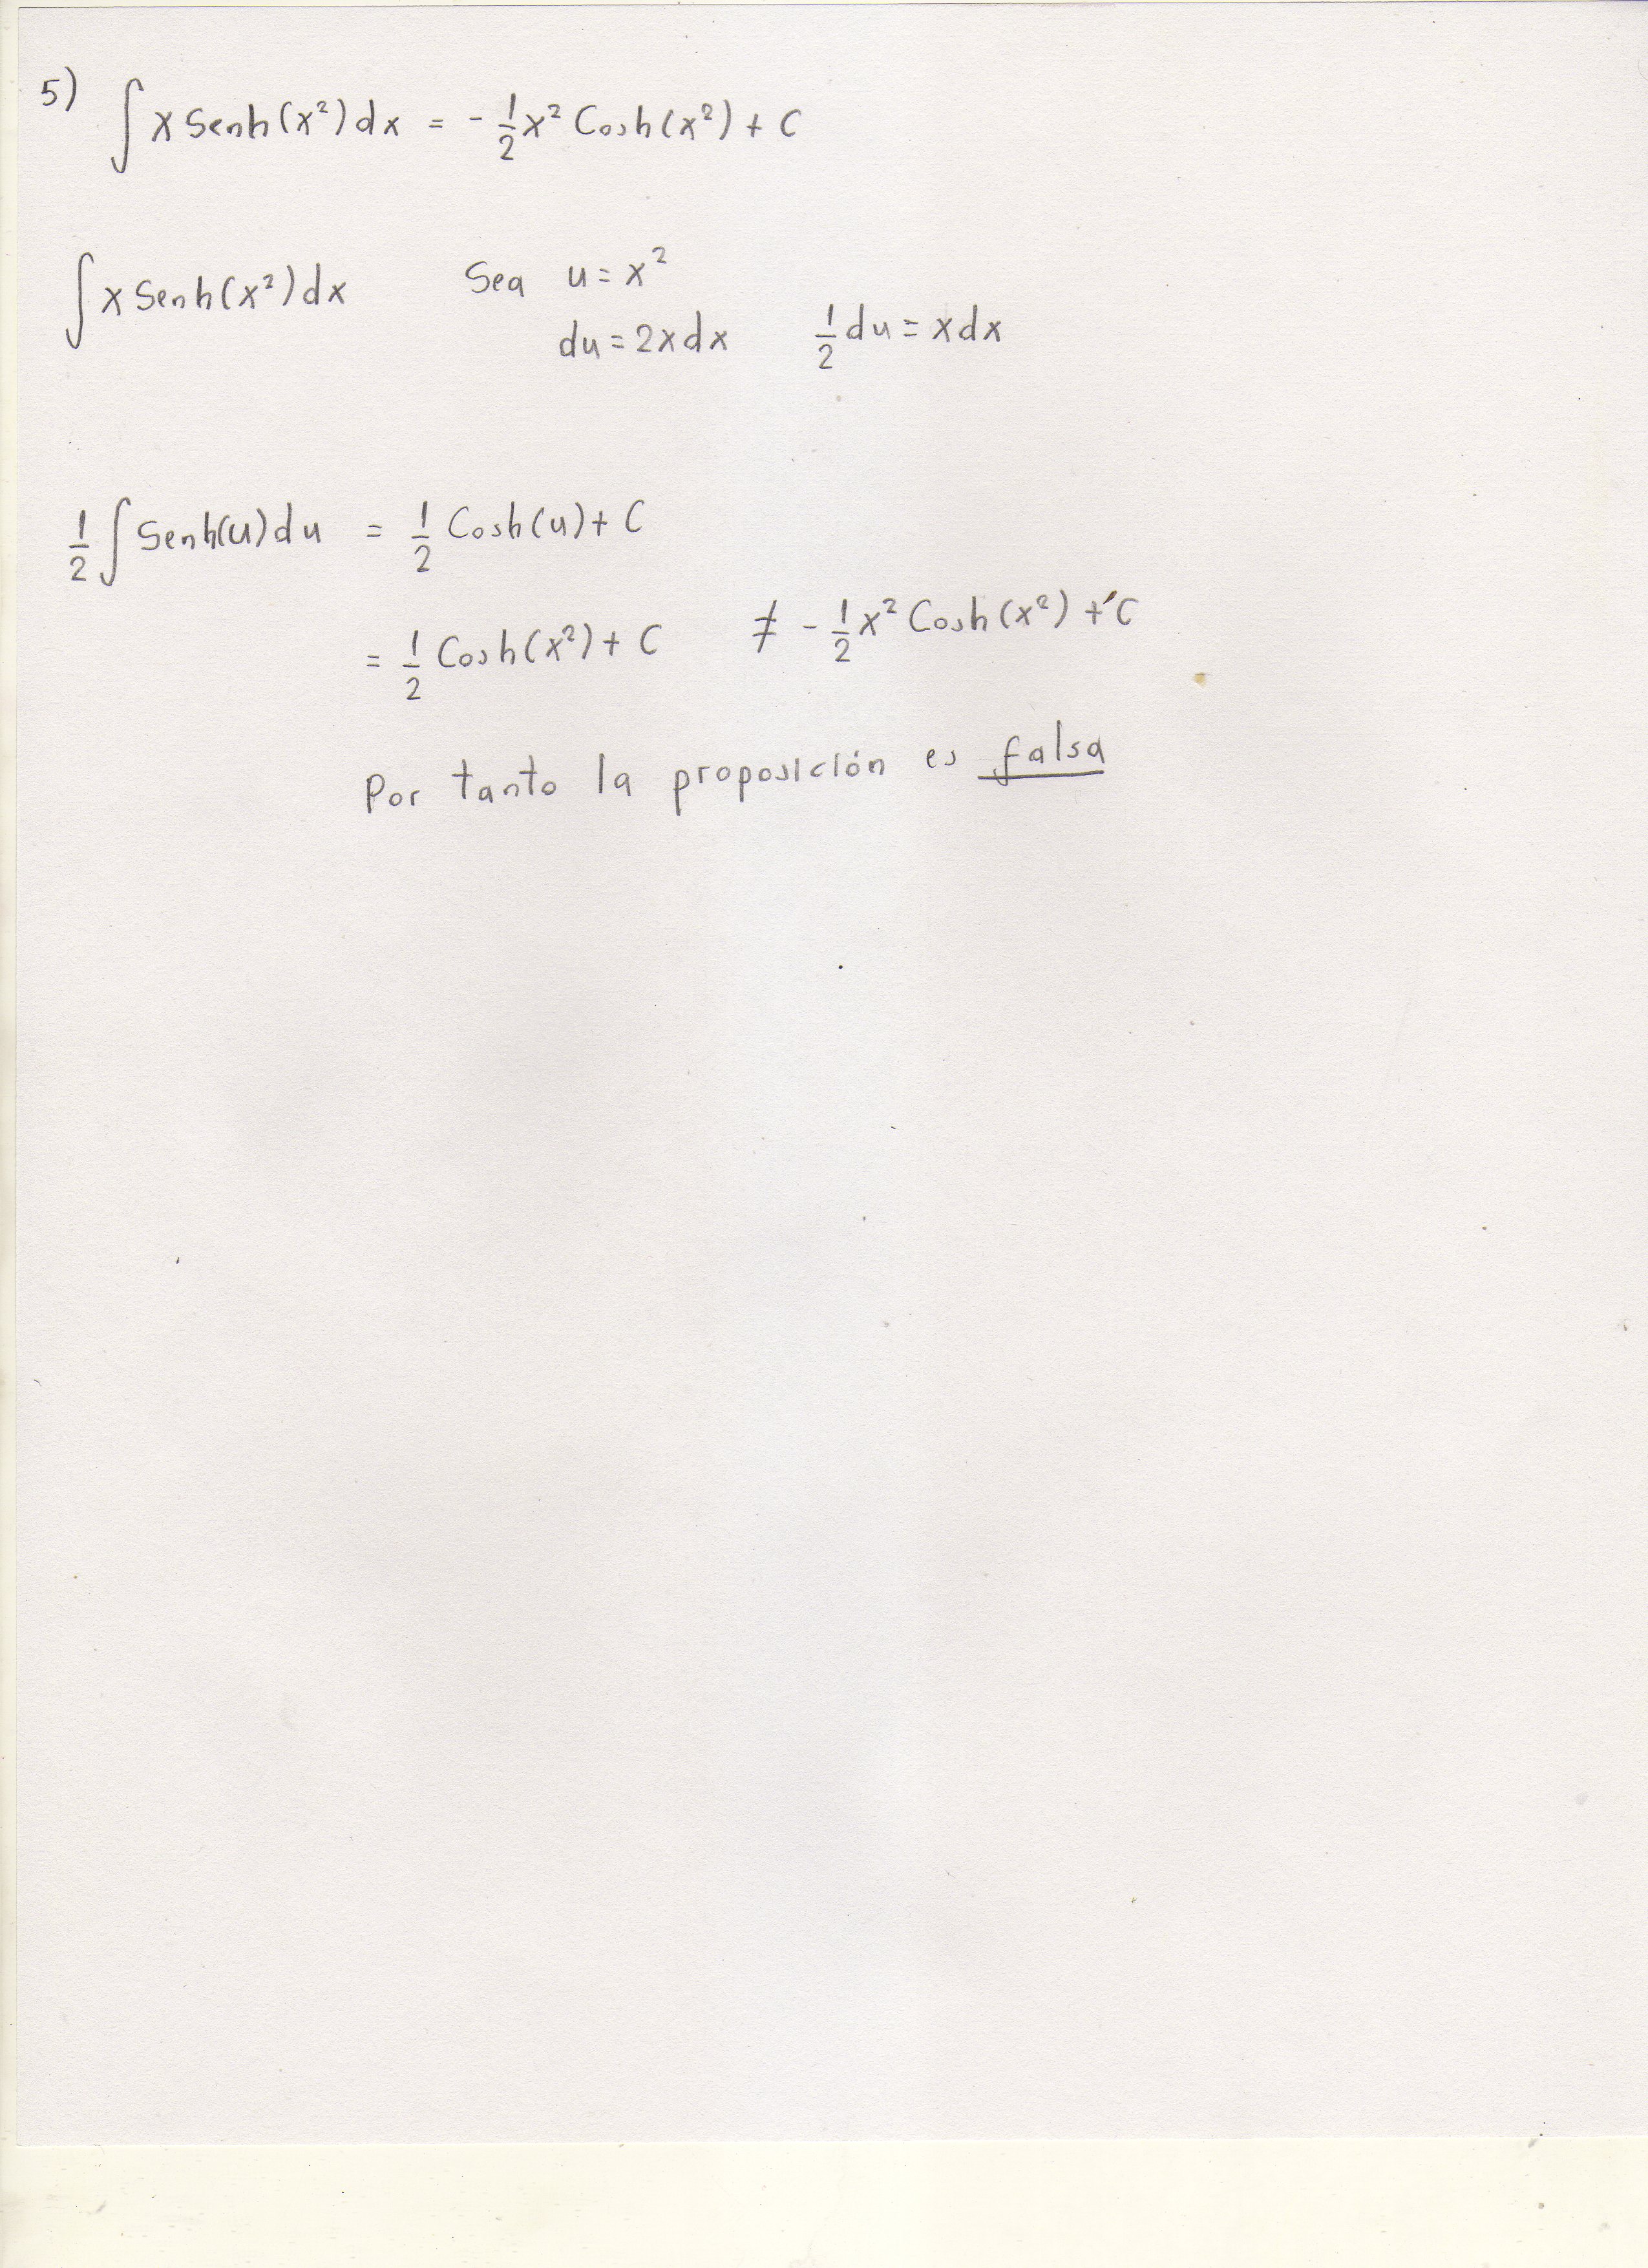 5) ∫ x Senh(x²) dx = - 1/2 x² Cosh(x²) + C
∫ x Senh(x²) dx Sea u = x²
du = 2x dx 1/2 du = x dx
1/2 ∫ Senh(u) du = 1/2 Cosh(u) + C
= 1/2 Cosh(x²) + C ≠ - 1/2 x² Cosh(x²) + C
Por tanto la proposición es falsa